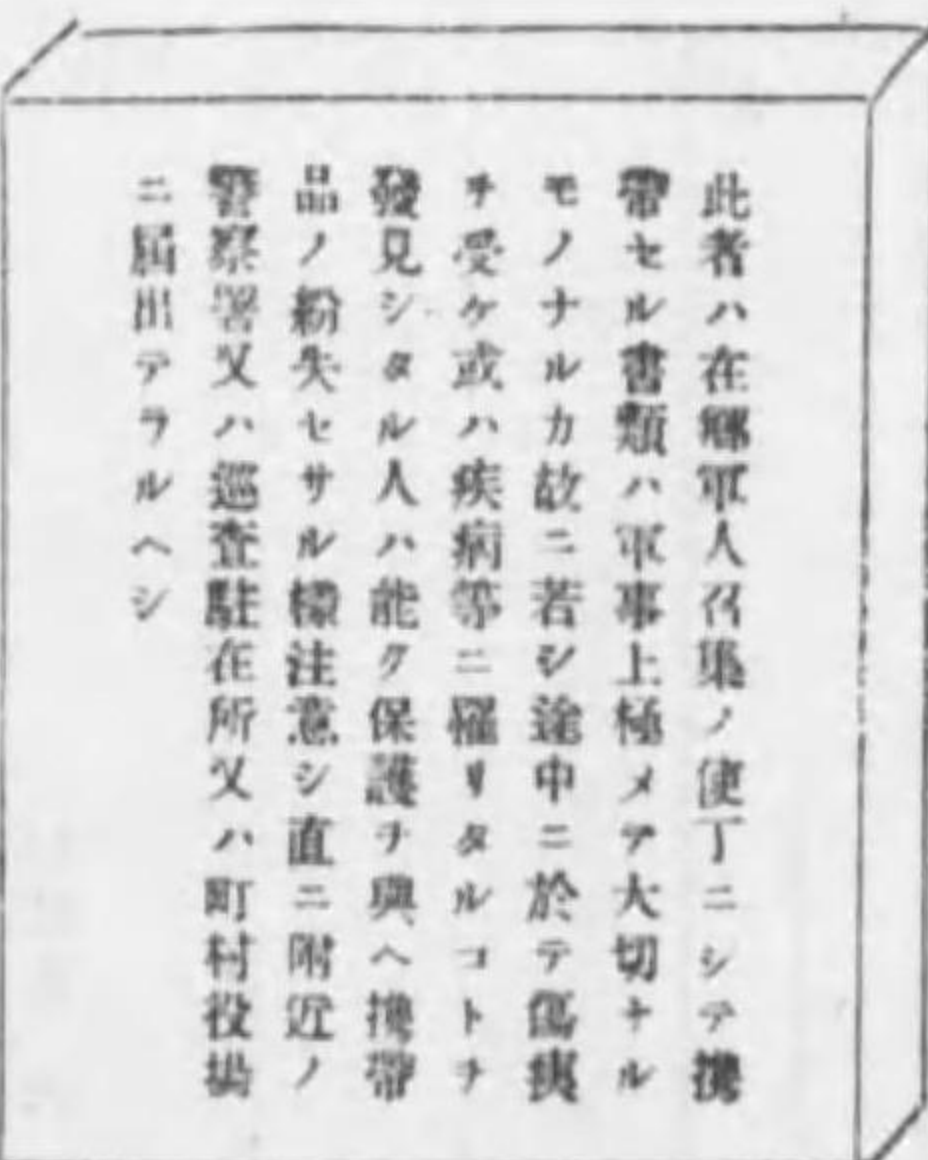 此者ハ在鄕軍人召集ノ使丁ニシテ携
帶セル書類ハ軍事上極メテ大切ナル
モノナルカ故ニ若シ途中ニ於テ傷痍
ヲ受ケ或ハ疾病等ニ罹リタルコトヲ
發見シタル人ハ能ク保護ヲ與ヘ携帶
品ノ紛失セサル樣注意シ直ニ附近ノ
警察署又ハ巡査駐在所又ハ町村役塲
ニ屆出テラルヘシ